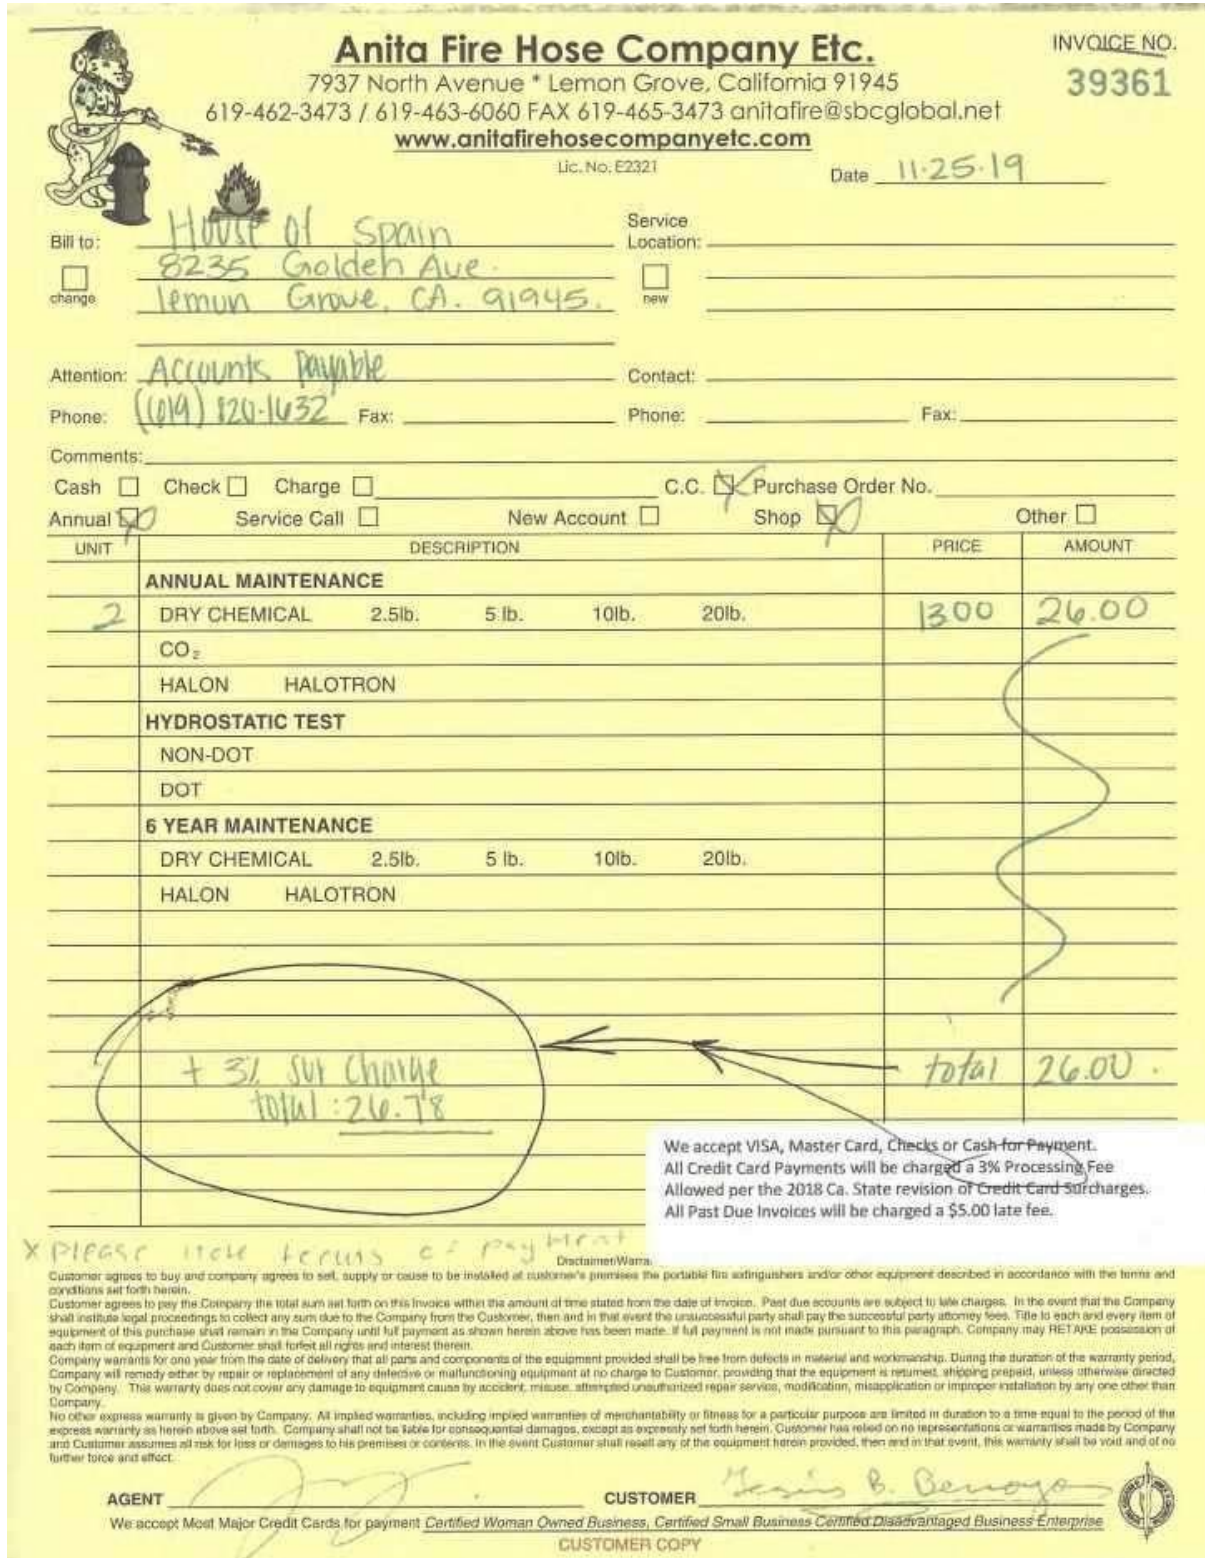 Anita Fire Hose Company Etc.
INVOICE NO.
39361
7937 North Avenue * Lemon Grove, California 91945
619-462-3473 / 619-463-6060 FAX 619-465-3473 anitafire@sbcglobal.net
www.anitafirehosecompanyetc.com
Lic. No. E2321
Date 11-25-19
Bill to: House of Spain
Service Location:
8235 Golden Ave.
change
new
lemun Grove, CA. 91945.
Attention: Accounts Payable Contact:
Phone: (619) 820-1632 Fax: Phone: Fax:
Comments:
Cash Check Charge C.C. Purchase Order No.
Annual Service Call New Account Shop Other
UNIT DESCRIPTION PRICE AMOUNT
ANNUAL MAINTENANCE
2 DRY CHEMICAL 2.5lb. 5 lb. 10lb. 20lb. 13.00 26.00
CO₂
HALON HALOTRON
HYDROSTATIC TEST
NON-DOT
DOT
6 YEAR MAINTENANCE
DRY CHEMICAL 2.5lb. 5 lb. 10lb. 20lb.
HALON HALOTRON
+ 3% Sur Charge total 26.00.
total: 26.78
We accept VISA, Master Card, Checks or Cash for Payment.
All Credit Card Payments will be charged a 3% Processing Fee
Allowed per the 2018 Ca. State revision of Credit Card Surcharges.
All Past Due Invoices will be charged a $5.00 late fee.
x Please note terms of payment
Disclaimer/Warra
Customer agrees to buy and company agrees to sell, supply or cause to be installed at customer's premises the portable fire extinguishers and/or other equipment described in accordance with the terms and
conditions set forth herein.
Customer agrees to pay the Company the total sum set forth on this Invoice within the amount of time stated from the date of Invoice. Past due accounts are subject to late charges. In the event that the Company
shall institute legal proceedings to collect any sum due to the Company from the Customer, then and in that event the unsuccessful party shall pay the successful party attorney fees. Title to each and every item of
equipment of this purchase shall remain in the Company until full payment as shown herein above has been made. If full payment is not made pursuant to this paragraph. Company may RETAKE possession of
each item of equipment and Customer shall forfeit all rights and interest therein.
Company warrants for one year from the date of delivery that all parts and components of the equipment provided shall be free from defects in material and workmanship. During the duration of the warranty period,
Company will remedy either by repair or replacement of any defective or malfunctioning equipment at no charge to Customer, providing that the equipment is returned, shipping prepaid, unless otherwise directed
by Company. This warranty does not cover any damage to equipment cause by accident, misuse, attempted unauthorized repair service, modification, misapplication or improper installation by any one other than
Company.
No other express warranty is given by Company. All implied warranties, including implied warranties of merchantability or fitness for a particular purpose are limited in duration to a time equal to the period of the
express warranty as herein above set forth. Company shall not be liable for consequential damages, except as expressly set forth herein. Customer has relied on no representations or warranties made by Company
and Customer assumes all risk for loss or damages to his premises or contents. In the event Customer shall resell any of the equipment herein provided, then and in that event, this warranty shall be void and of no
further force and effect.
AGENT CUSTOMER Jesús B. Benayas
We accept Most Major Credit Cards for payment Certified Woman Owned Business, Certified Small Business Certified Disadvantaged Business Enterprise
CUSTOMER COPY